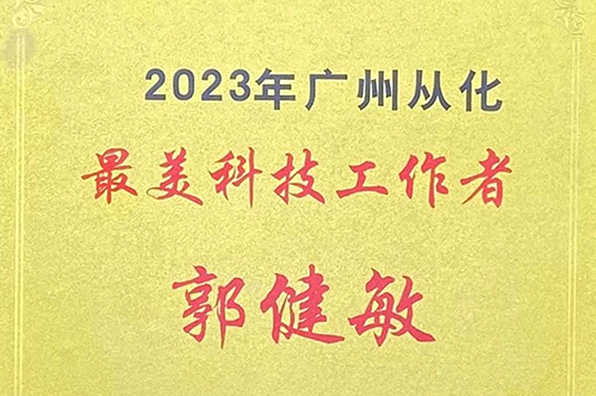 2023年广州从化
最美科技工作者
郭健敏